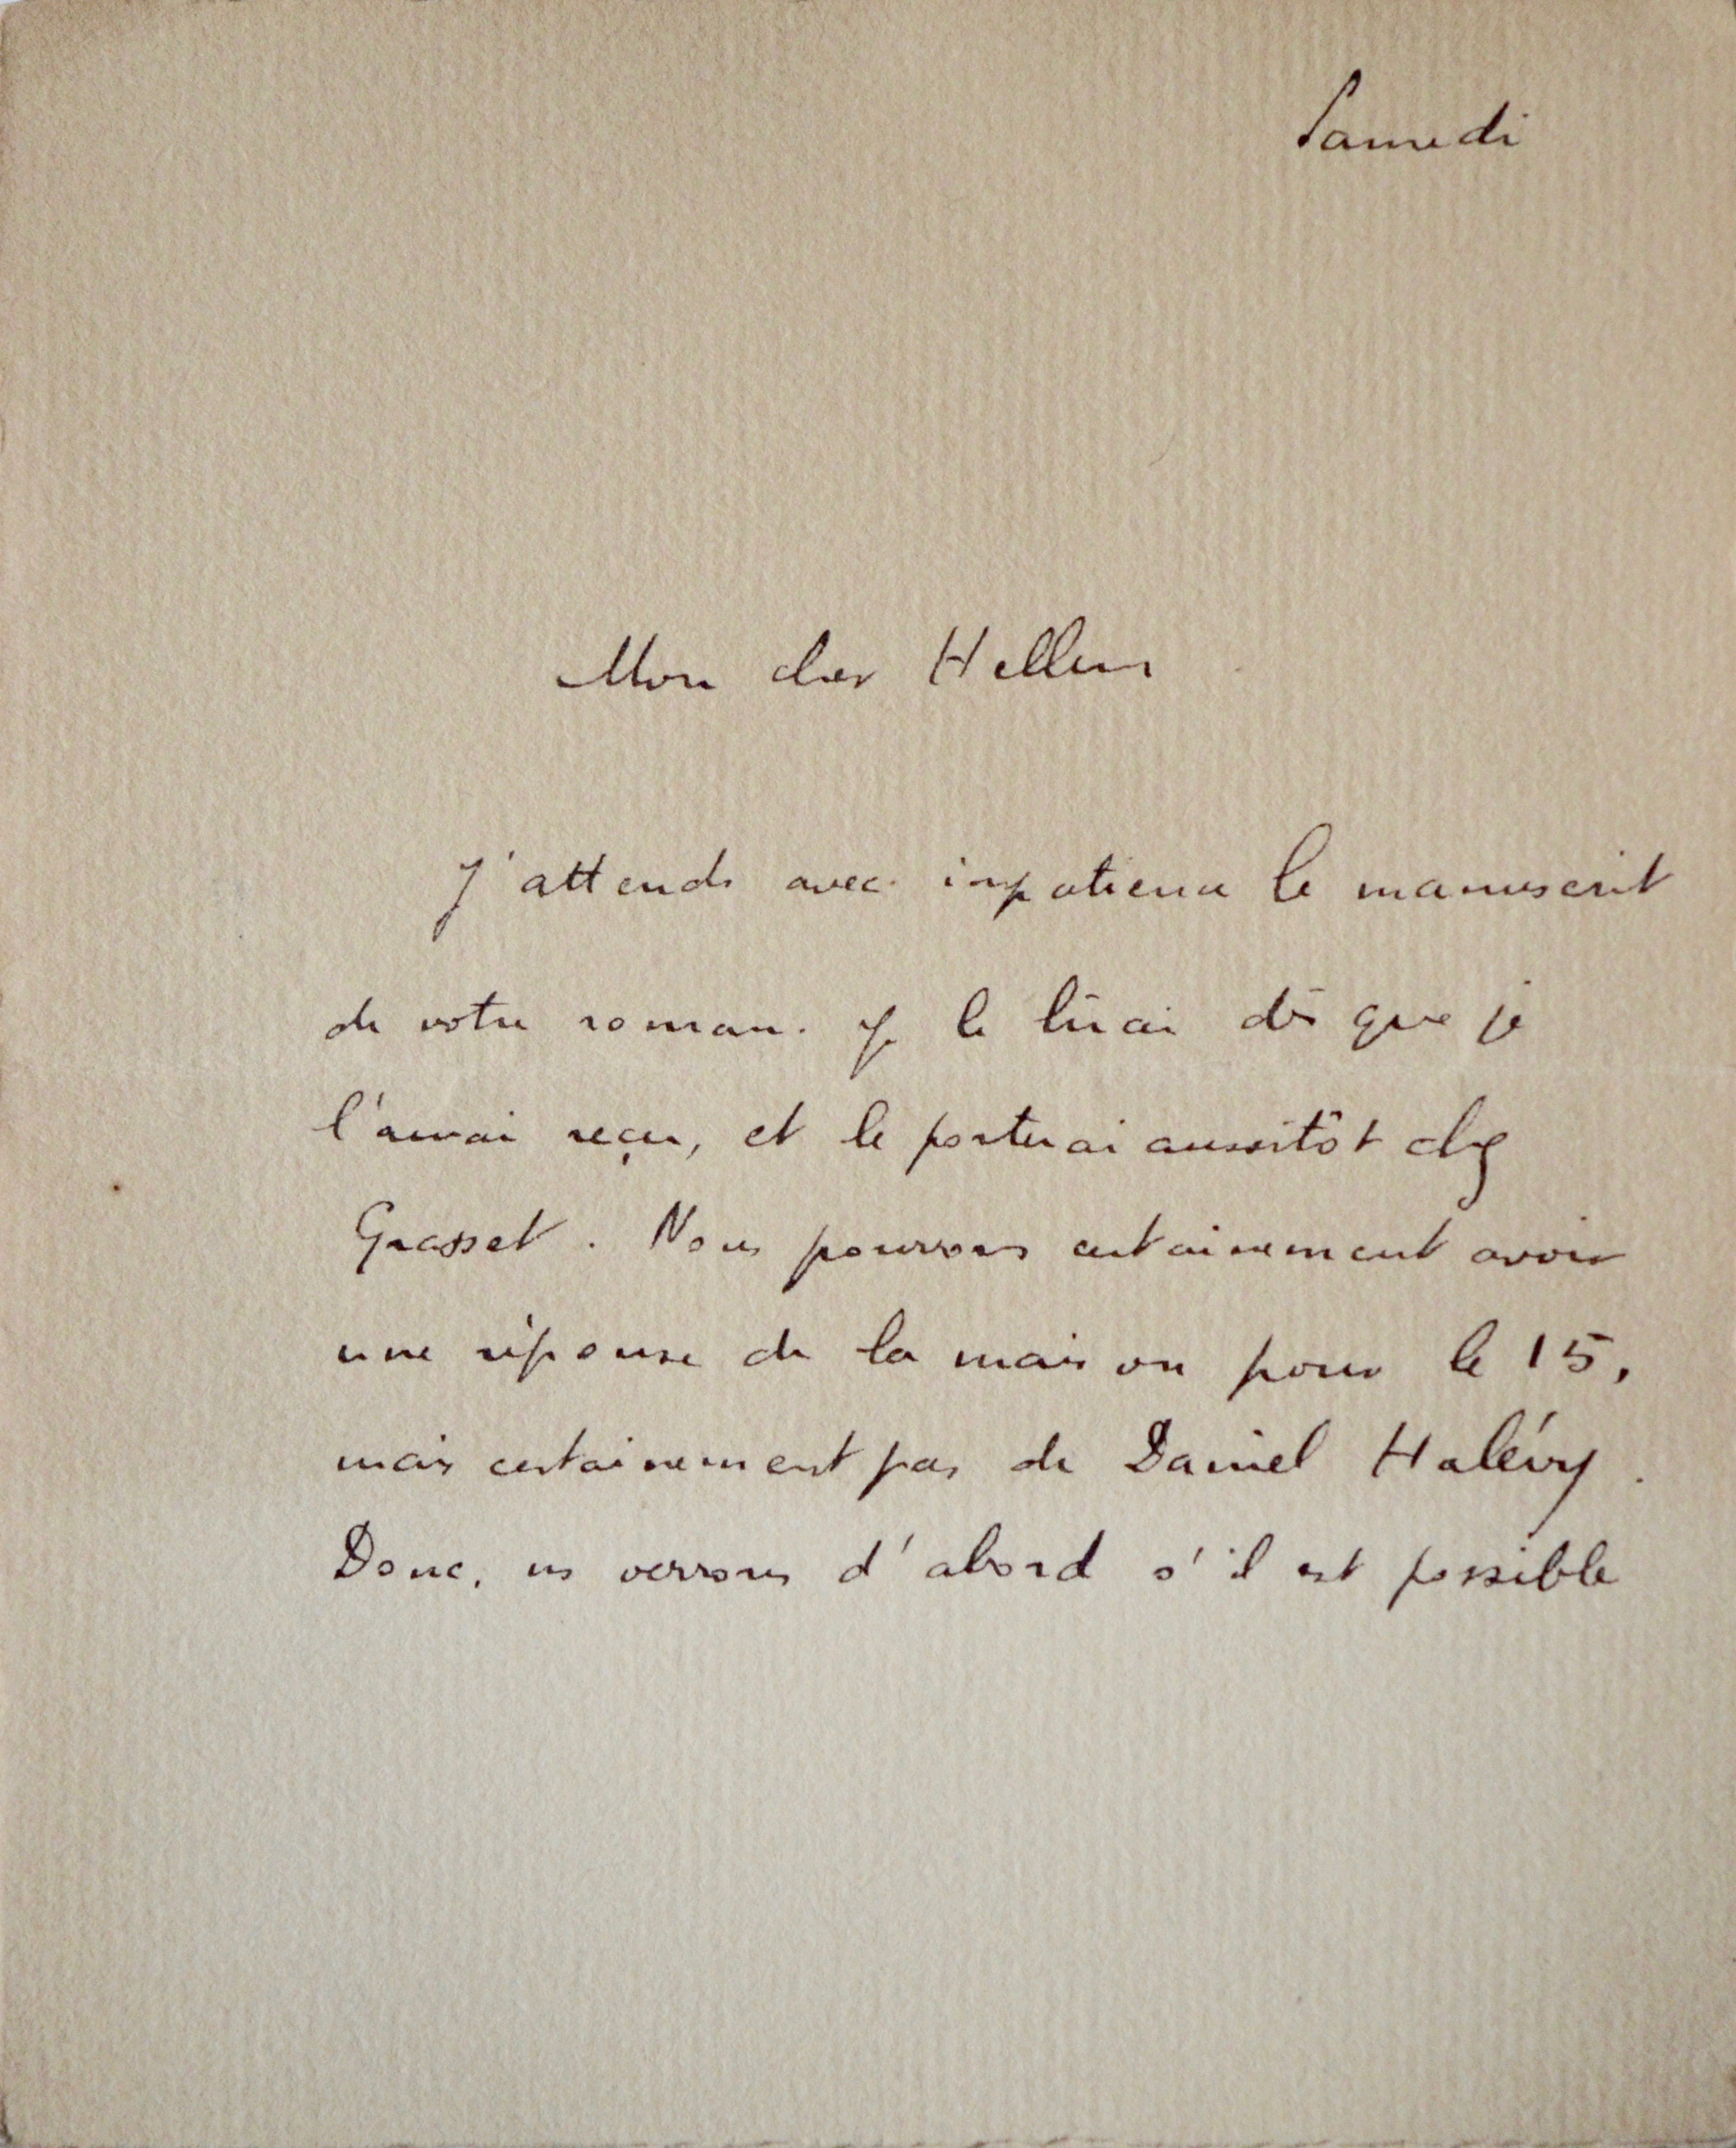 Samedi
Mon cher Hellens
J'attends avec impatience le manuscrit
de votre roman. Je le lirai dès que je
l'aurai reçu, et le porterai aussitôt chez
Grasset. Nous pourrons certainement avoir
une réponse de la maison pour le 15,
mais certainement pas de Daniel Halévy.
Donc, ns verrons d'abord s'il est possible